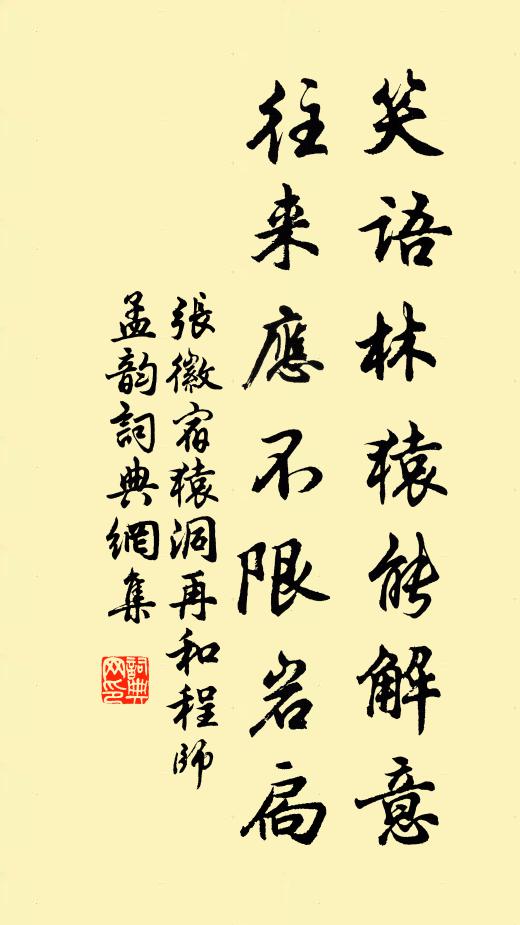 笑語林猿能解意
往来應不限岩扃
張徽宿猿洞再和程師
孟韵詞典網集
詞典
网印